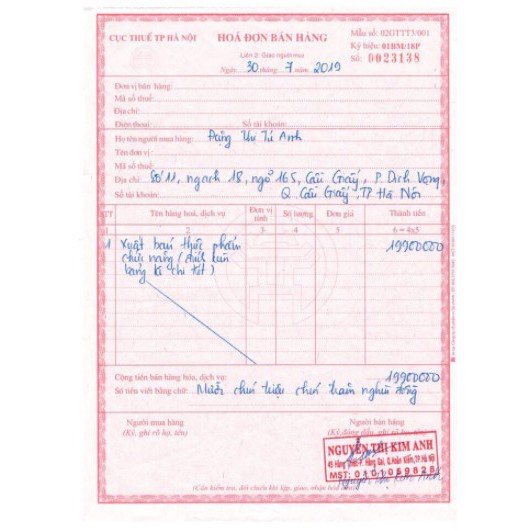 CỤC THUẾ TP HÀ NỘI
HOÁ ĐƠN BÁN HÀNG
Mẫu số: 02GTTT3/001
Liên 2: Giao người mua
Ký hiệu: 01BM/18P
Ngày 30 tháng 7 năm 2019
Số: 0023138
Đơn vị bán hàng:
Mã số thuế:
Địa chỉ:
Điện thoại: Số tài khoản:
Họ tên người mua hàng: Đặng Thị Tú Anh
Tên đơn vị:
Mã số thuế:
Địa chỉ: Số 11, ngách 18, ngõ 165, Cầu Giấy, P. Dịch Vọng,
Số tài khoản: Q. Cầu Giấy, TP Hà Nội
STT Tên hàng hoá, dịch vụ Đơn vị tính Số lượng Đơn giá Thành tiền
1 2 3 4 5 6 = 4x5
1 Xuất bán thực phẩm 19900000
chức năng (đính kèm
bảng kê chi tiết)
Cộng tiền bán hàng hóa, dịch vụ: 19900000
Số tiền viết bằng chữ: Mười chín triệu chín trăm nghìn đồng
Người mua hàng Người bán hàng
(Ký, ghi rõ họ, tên) (Ký, đóng dấu, ghi rõ họ, tên)
NGUYỄN THỊ KIM ANH
P. Hàng Gai, Q.Hoàn Kiếm, TP.Hà Nội
MST: 0101069828
Nguyễn Thị Kim Anh
(Cần kiểm tra, đối chiếu khi lập, giao, nhận hóa đơn)